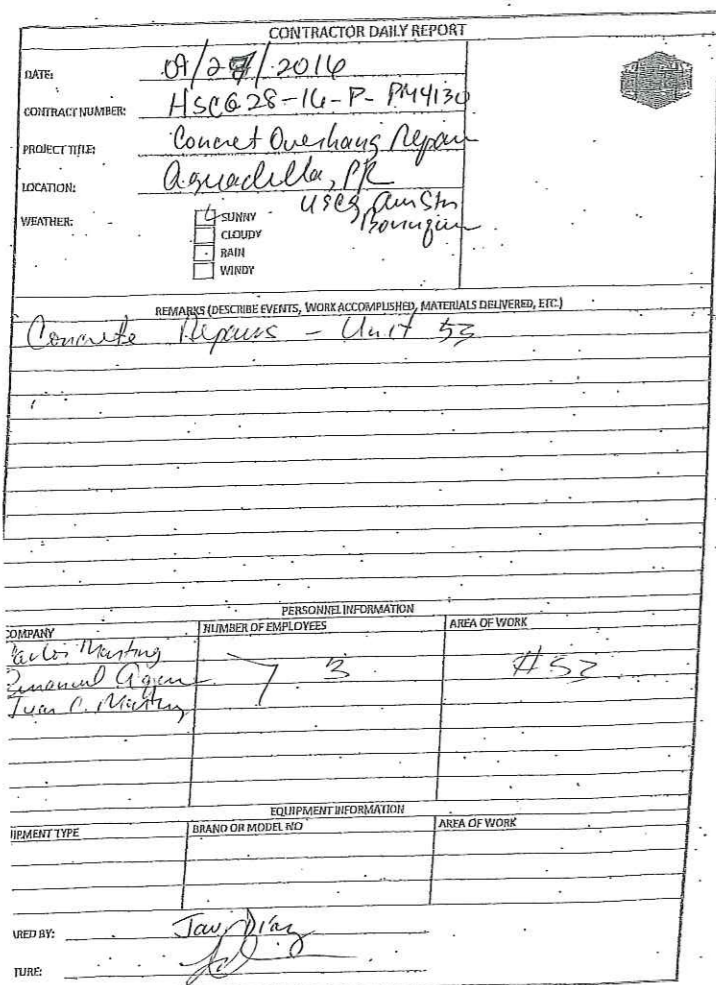 CONTRACTOR DAILY REPORT
DATE: 09/27/2016
CONTRACT NUMBER: HSCG28-16-P-PM4130
PROJECT TITLE: Concret Overhang Repair
LOCATION: Aguadilla, PR
USCG Air Stn
WEATHER: SUNNY
CLOUDY
RAIN
WINDY
REMARKS (DESCRIBE EVENTS, WORK ACCOMPLISHED, MATERIALS DELIVERED, ETC.)
Concrete Repairs - Unit 53
PERSONNEL INFORMATION
COMPANY NUMBER OF EMPLOYEES AREA OF WORK
3 #53
Juan C.
EQUIPMENT INFORMATION
IPMENT TYPE BRAND OR MODEL NO AREA OF WORK
ARED BY: Javi Díaz
TURE: